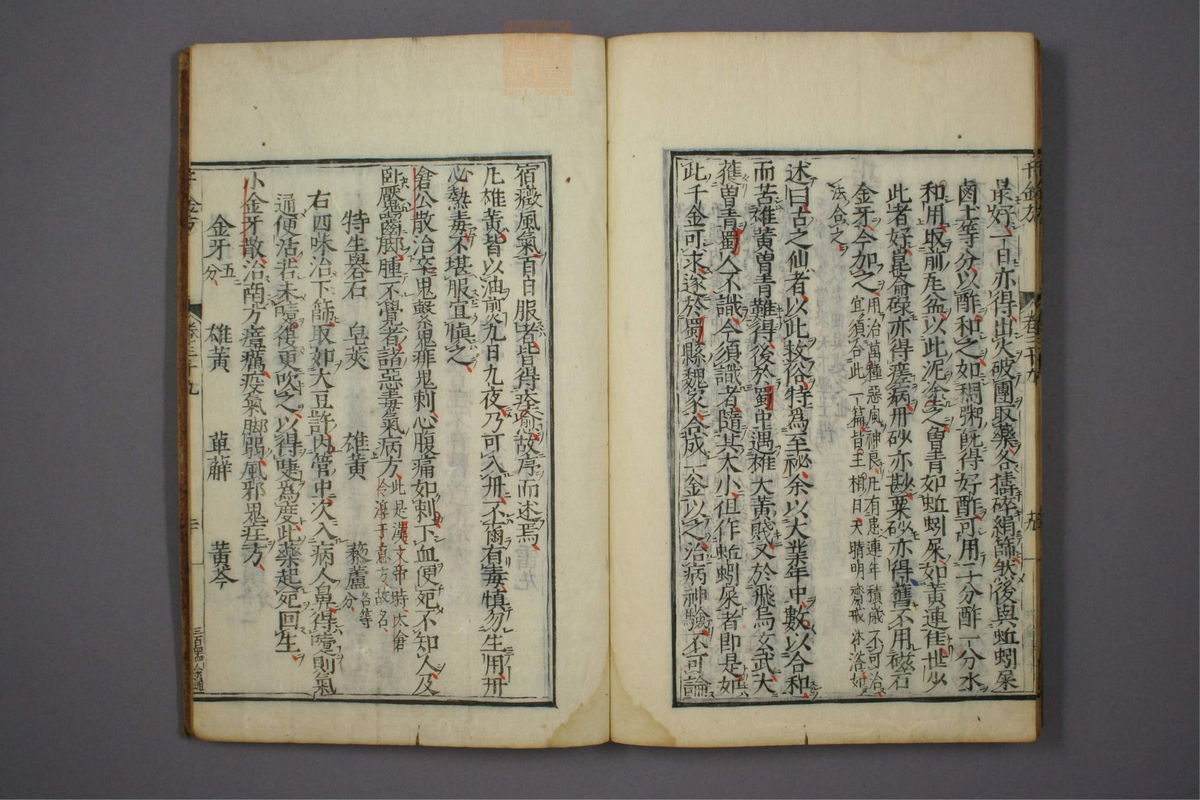 最好一日亦得出火破團取藥各擣碎絹篩然後與蚯蚓屎
鹵土等分以酢和之如稠粥旣得好酢可用二分酢一分水
和用取前瓦盆以此泥塗之曽青如蚯蚓屎如黄連佳世少
此者好崑崙碌亦得瘧病丹砂亦甚粟砂亦得舊不用磁石
金牙今加之
用治萬種惡風神良凡有患連年積歳不可治
宜須合此一篇皆王相日天晴明齋戒沐浴如
法合之
述曰古之仙者以此救俗特為至祕余以大業年中數以合和
而苦雄黄曽青難得後於蜀中遇雄大黄賤又於飛烏玄武大
獲曽青蜀人不識今須識者隨其大小但作蚯蚓屎者即是如
此千金可求遂於蜀縣魏家合成一金以之治病神驗不可論
宿癥風氣百日服者皆得痊愈故序而述焉
凡雄黄皆以油煎九日九夜乃可入丹不爾有毒慎勿生用丹
必熱毒不堪服宜慎之
倉公散治卒鬼擊鬼痱鬼刺心腹痛如刺下血便死不知人及
卧魘齧脚腫不覺者諸惡毒氣病方
此是漢文帝時太倉
令淳于意方故名
特生礜石 皂莢 雄黄 藜蘆各等分
右四味治下篩取如大豆許内管中吹入病人鼻得嚏則氣
通便活若未嚏復更吹之以得嚏爲度此藥起死回生
小金牙散治南方瘴癘疫氣脚弱風邪鬼疰方
金牙五分 雄黄 萆薢 黄芩